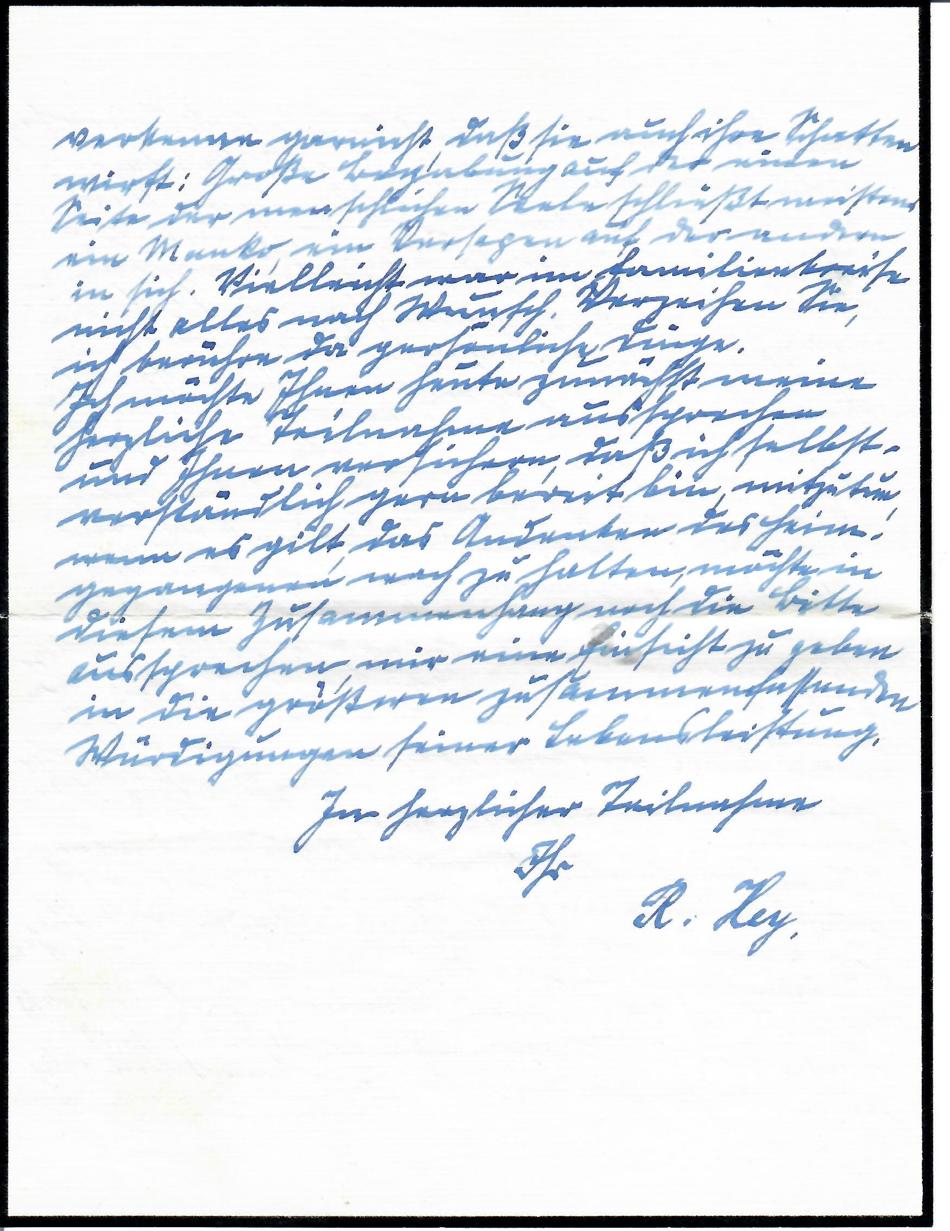 verkenne garnicht, daß sie auch ihre Schatten
wirft: Große Begabung auf der einen
Seite der menschlichen Seele schließt meistens
ein Manko, ein Versagen auf der andern
in sich. Vielleicht war im Familienkreise
nicht alles nach Wunsch. Verzeihen Sie,
ich berühre da persönliche Dinge.
Ich möchte Ihnen heute zunächst meine
herzliche Teilnahme aussprechen
und Ihnen versichern, daß ich selbst-
verständlich gern bereit bin, mitzutun,
wenn es gilt, das Andenken des heim-
gegangenen wach zu halten, möchte in
diesem Zusammenhang noch die Bitte
aussprechen, mir eine Einsicht zu geben
in die größeren zusammenfassenden
Würdigungen seiner Lebensleistung.
In herzlicher Teilnahme
Ihr
R. Hey.